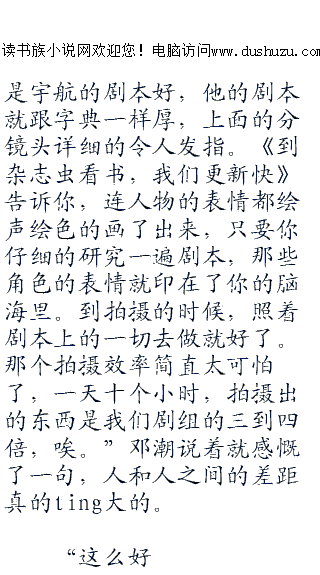 读书族小说网欢迎您！电脑访问www.dushuzu.com
是宇航的剧本好，他的剧本
就跟字典一样厚，上面的分
镜头详细的令人发指。《到
杂志虫看书，我们更新快》
告诉你，连人物的表情都绘
声绘色的画了出来，只要你
仔细的研究一遍剧本，那些
角色的表情就印在了你的脑
海里。到拍摄的时候，照着
剧本上的一切去做就好了。
那个拍摄效率简直太可怕
了，一天十个小时，拍摄出
的东西是我们剧组的三到四
倍，唉。”邓潮说着就感慨
了一句，人和人之间的差距
真的ting大的。
“这么好